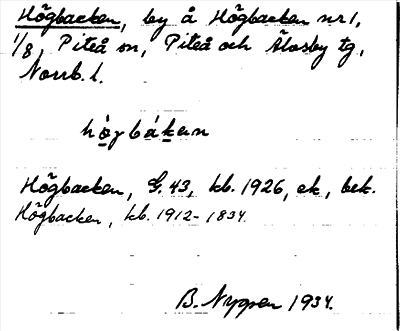 Högbacken, by å Högbacken nr 1,
1/8, Piteå sn, Piteå och Älvsby tg,
Norrb. l.
hò̤gbáḵan
Högbacken, G. 43, kb. 1926, ek, bek.
Högbacken, kb. 1912-1834.
B. Nygren 1934.